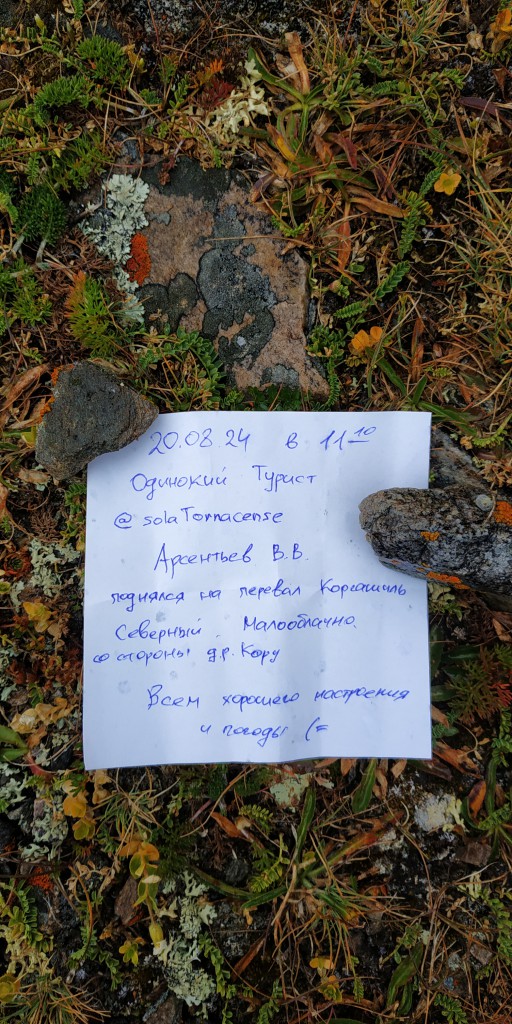 20.08.24 в 11 10
Одинокий Турист
@ solaTornacense
Арсентьев В.В.
поднялся на перевал Коргашиль
Северный. Малооблачно.
со стороны д.р. Кору
Всем хорошего настроения
и погоды (=